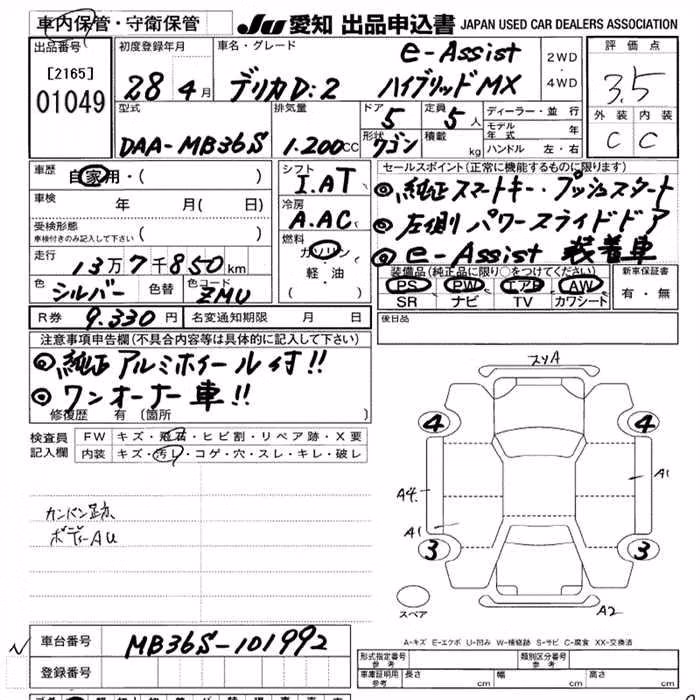 車内保管・守衛保管
JU 愛知 出品申込書 JAPAN USED CAR DEALERS ASSOCIATION
出品番号 初度登録年月 車名・グレード e-Assist 2WD 評価点
[2165] 28年4月 デリカD:2 ハイブリッドMX ・4WD 3.5
01049
型式 排気量 ドア 5 定員 5人 ディーラー・並行 外装 内装
DAA-MB36S 1.200cc 形状 ワゴン 積載 kg モデル年式 年 C C
ハンドル 左・右
車歴 自家用・( ) シフト I.AT セールスポイント(正常に機能するものに限ります)
◎純正スマートキー・プッシュスタート
車検 年 月( 日) 冷房 A.AC ◎左側パワースライドドア
受検形態 車検付きのみ記入して下さい ( ) ◎e-Assist 装着車
走行 13万7千850km 燃料 ガソリン・軽油 ( )
装備品(純正品に限り○をつけてください) 新車保証書
色 シルバー 色替 色コード ZMU PS PW エアB AW 有・無
SR ナビ TV カワシート
R券 9.330円 名変通知期限 月 日 後日品
注意事項申告欄(不具合内容等は具体的に記入して下さい)
◎純正アルミホイール付!!
◎ワンオーナー車!!
修復歴 有 〔箇所 〕
検査員記入欄 FW キズ・飛石・ヒビ割・リペア跡・X要
内装 キズ・汚レ・コゲ・穴・スレ・キレ・破レ
カンバン跡
ボディーAU
スリA
4 4
A4 A1
A1
3 3
スペア A2
A-キズ E-エクボ U-凹み W-補修跡 S-サビ C-腐食 XX-交換済
車台番号 MB36S-101992
登録番号
型式指定番号 参考 類別区分番号 参考
車庫証明用 参考 長さ cm 幅 cm 高さ cm